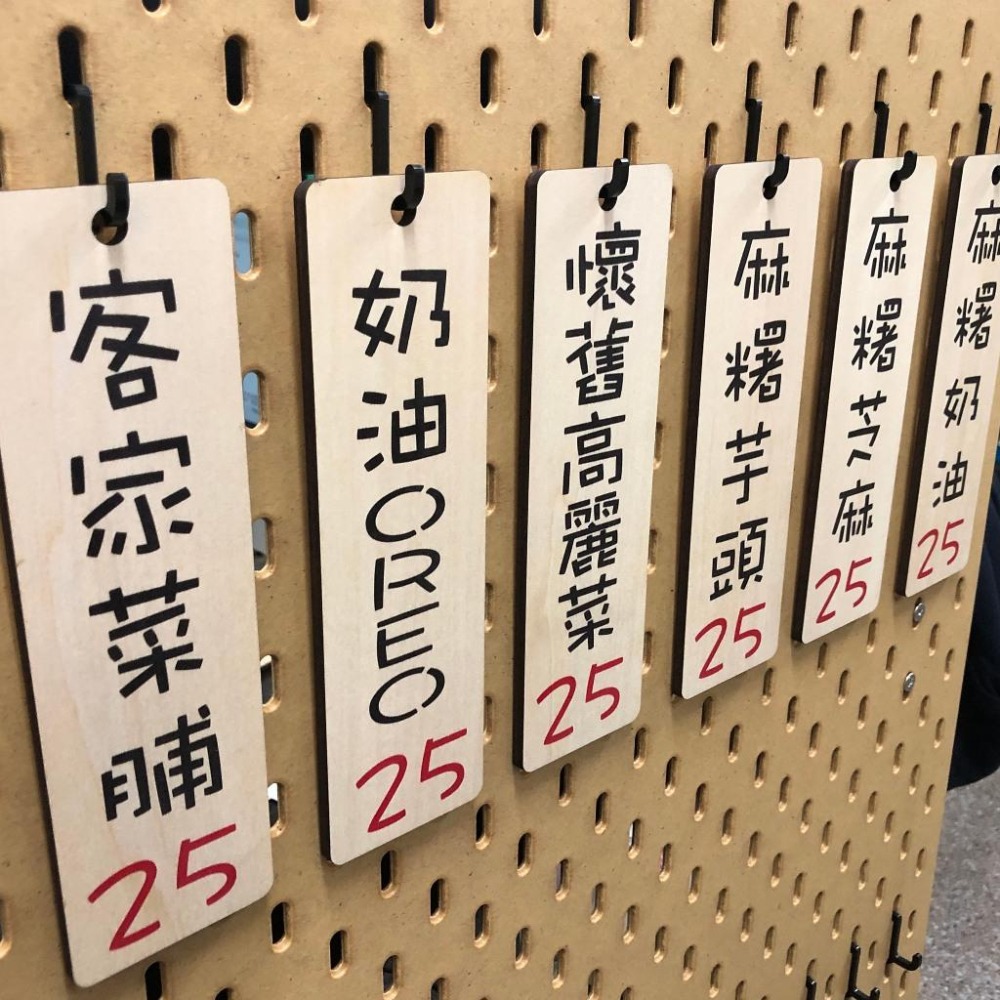 客家菜脯
25
奶油OREO
25
懷舊高麗菜
25
麻糬芋頭
25
麻糬芝麻
25
麻糬奶油
25